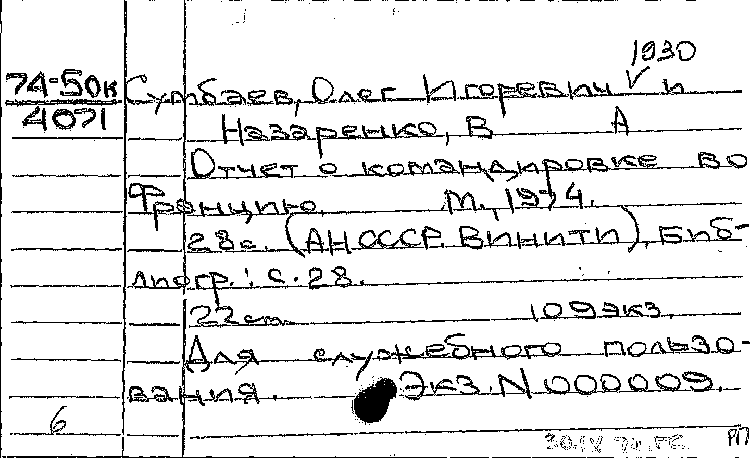 1930
74-50к Сумбаев, Олег Игоревич и
4071 Назаренко, В А
Отчет о командировке во
Францию. М., 1974.
28с. (АН СССР. ВИНИТИ). Биб-
лиогр.: с. 28.
22см. 109экз.
Для служебного пользо-
вания. Экз. N 000009.
6